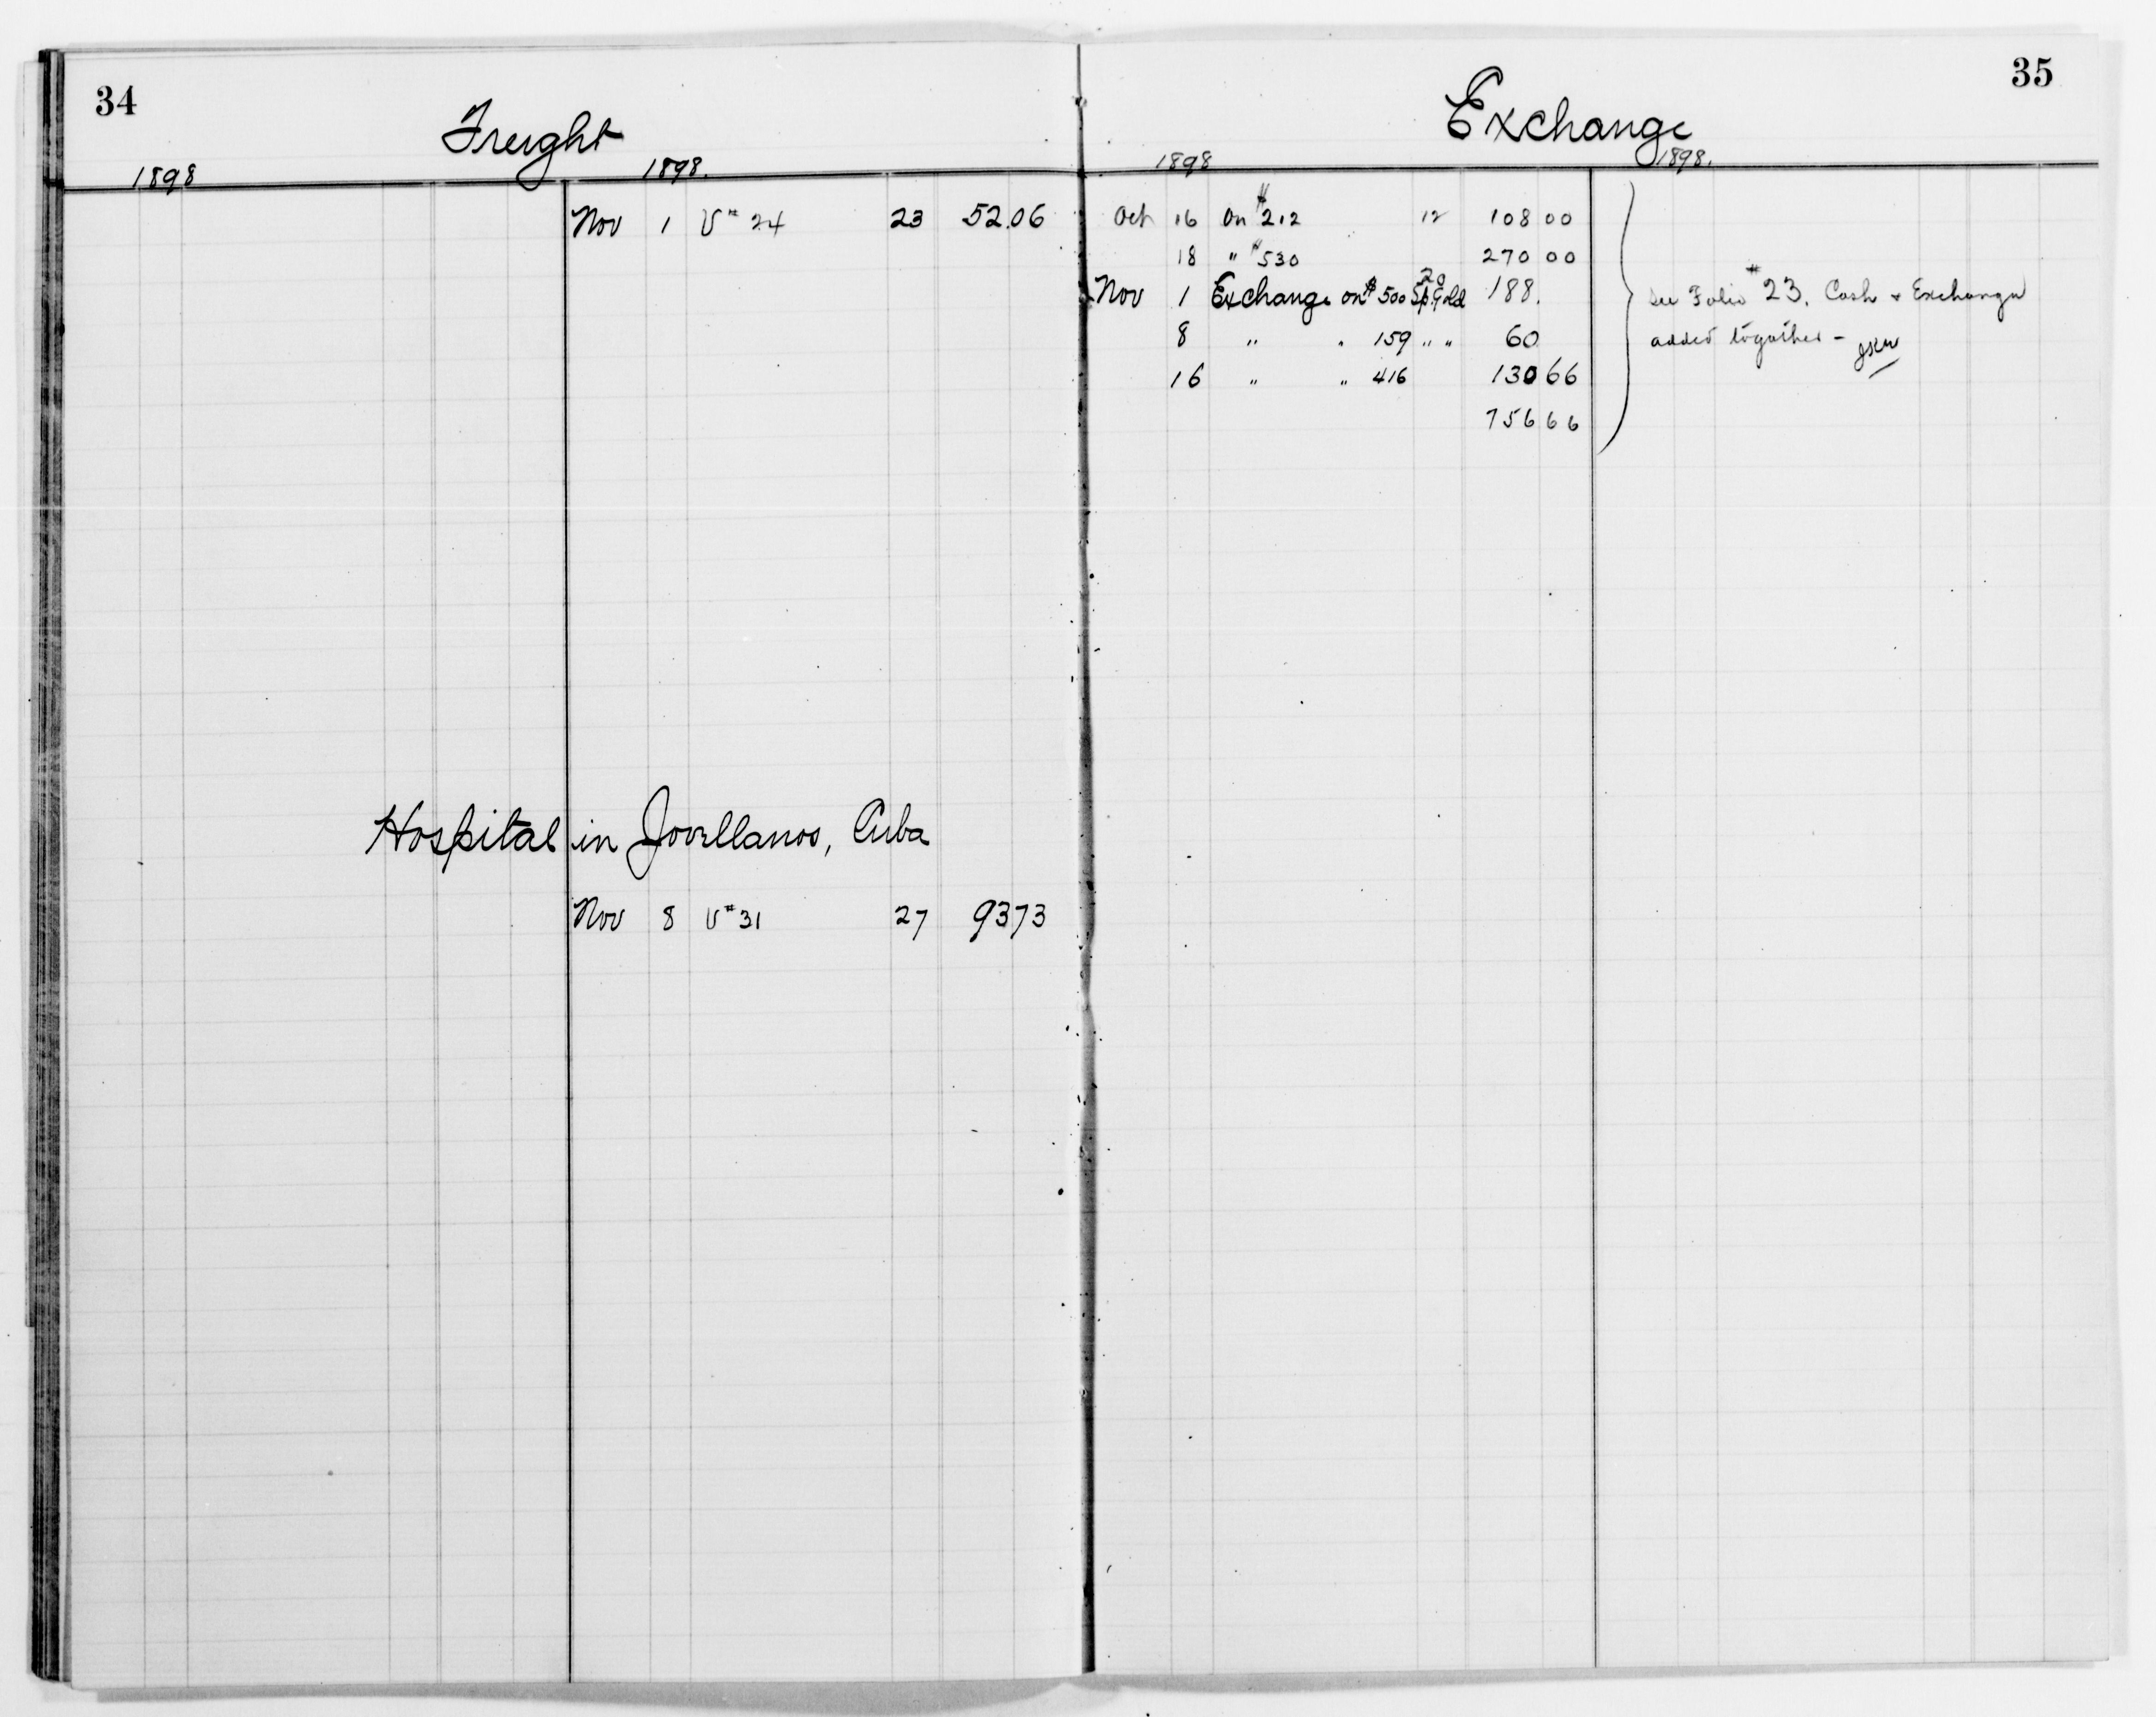 34
Freight
1898 1898.
Nov 1 V# 24 23 52.06
Hospital in Jovellanos, Cuba
Nov 8 V# 31 27 9373
35
Exchange
1898 1898.
Oct 16 On $212 12 108 00
18 " $530 270 00
Nov 1 Exchange on $500 Sp. Gold 20 188.
8 " " 159 " " 60
16 " " 416 130 66
756 66
See Folio #23. Cash & Exchange
added together -